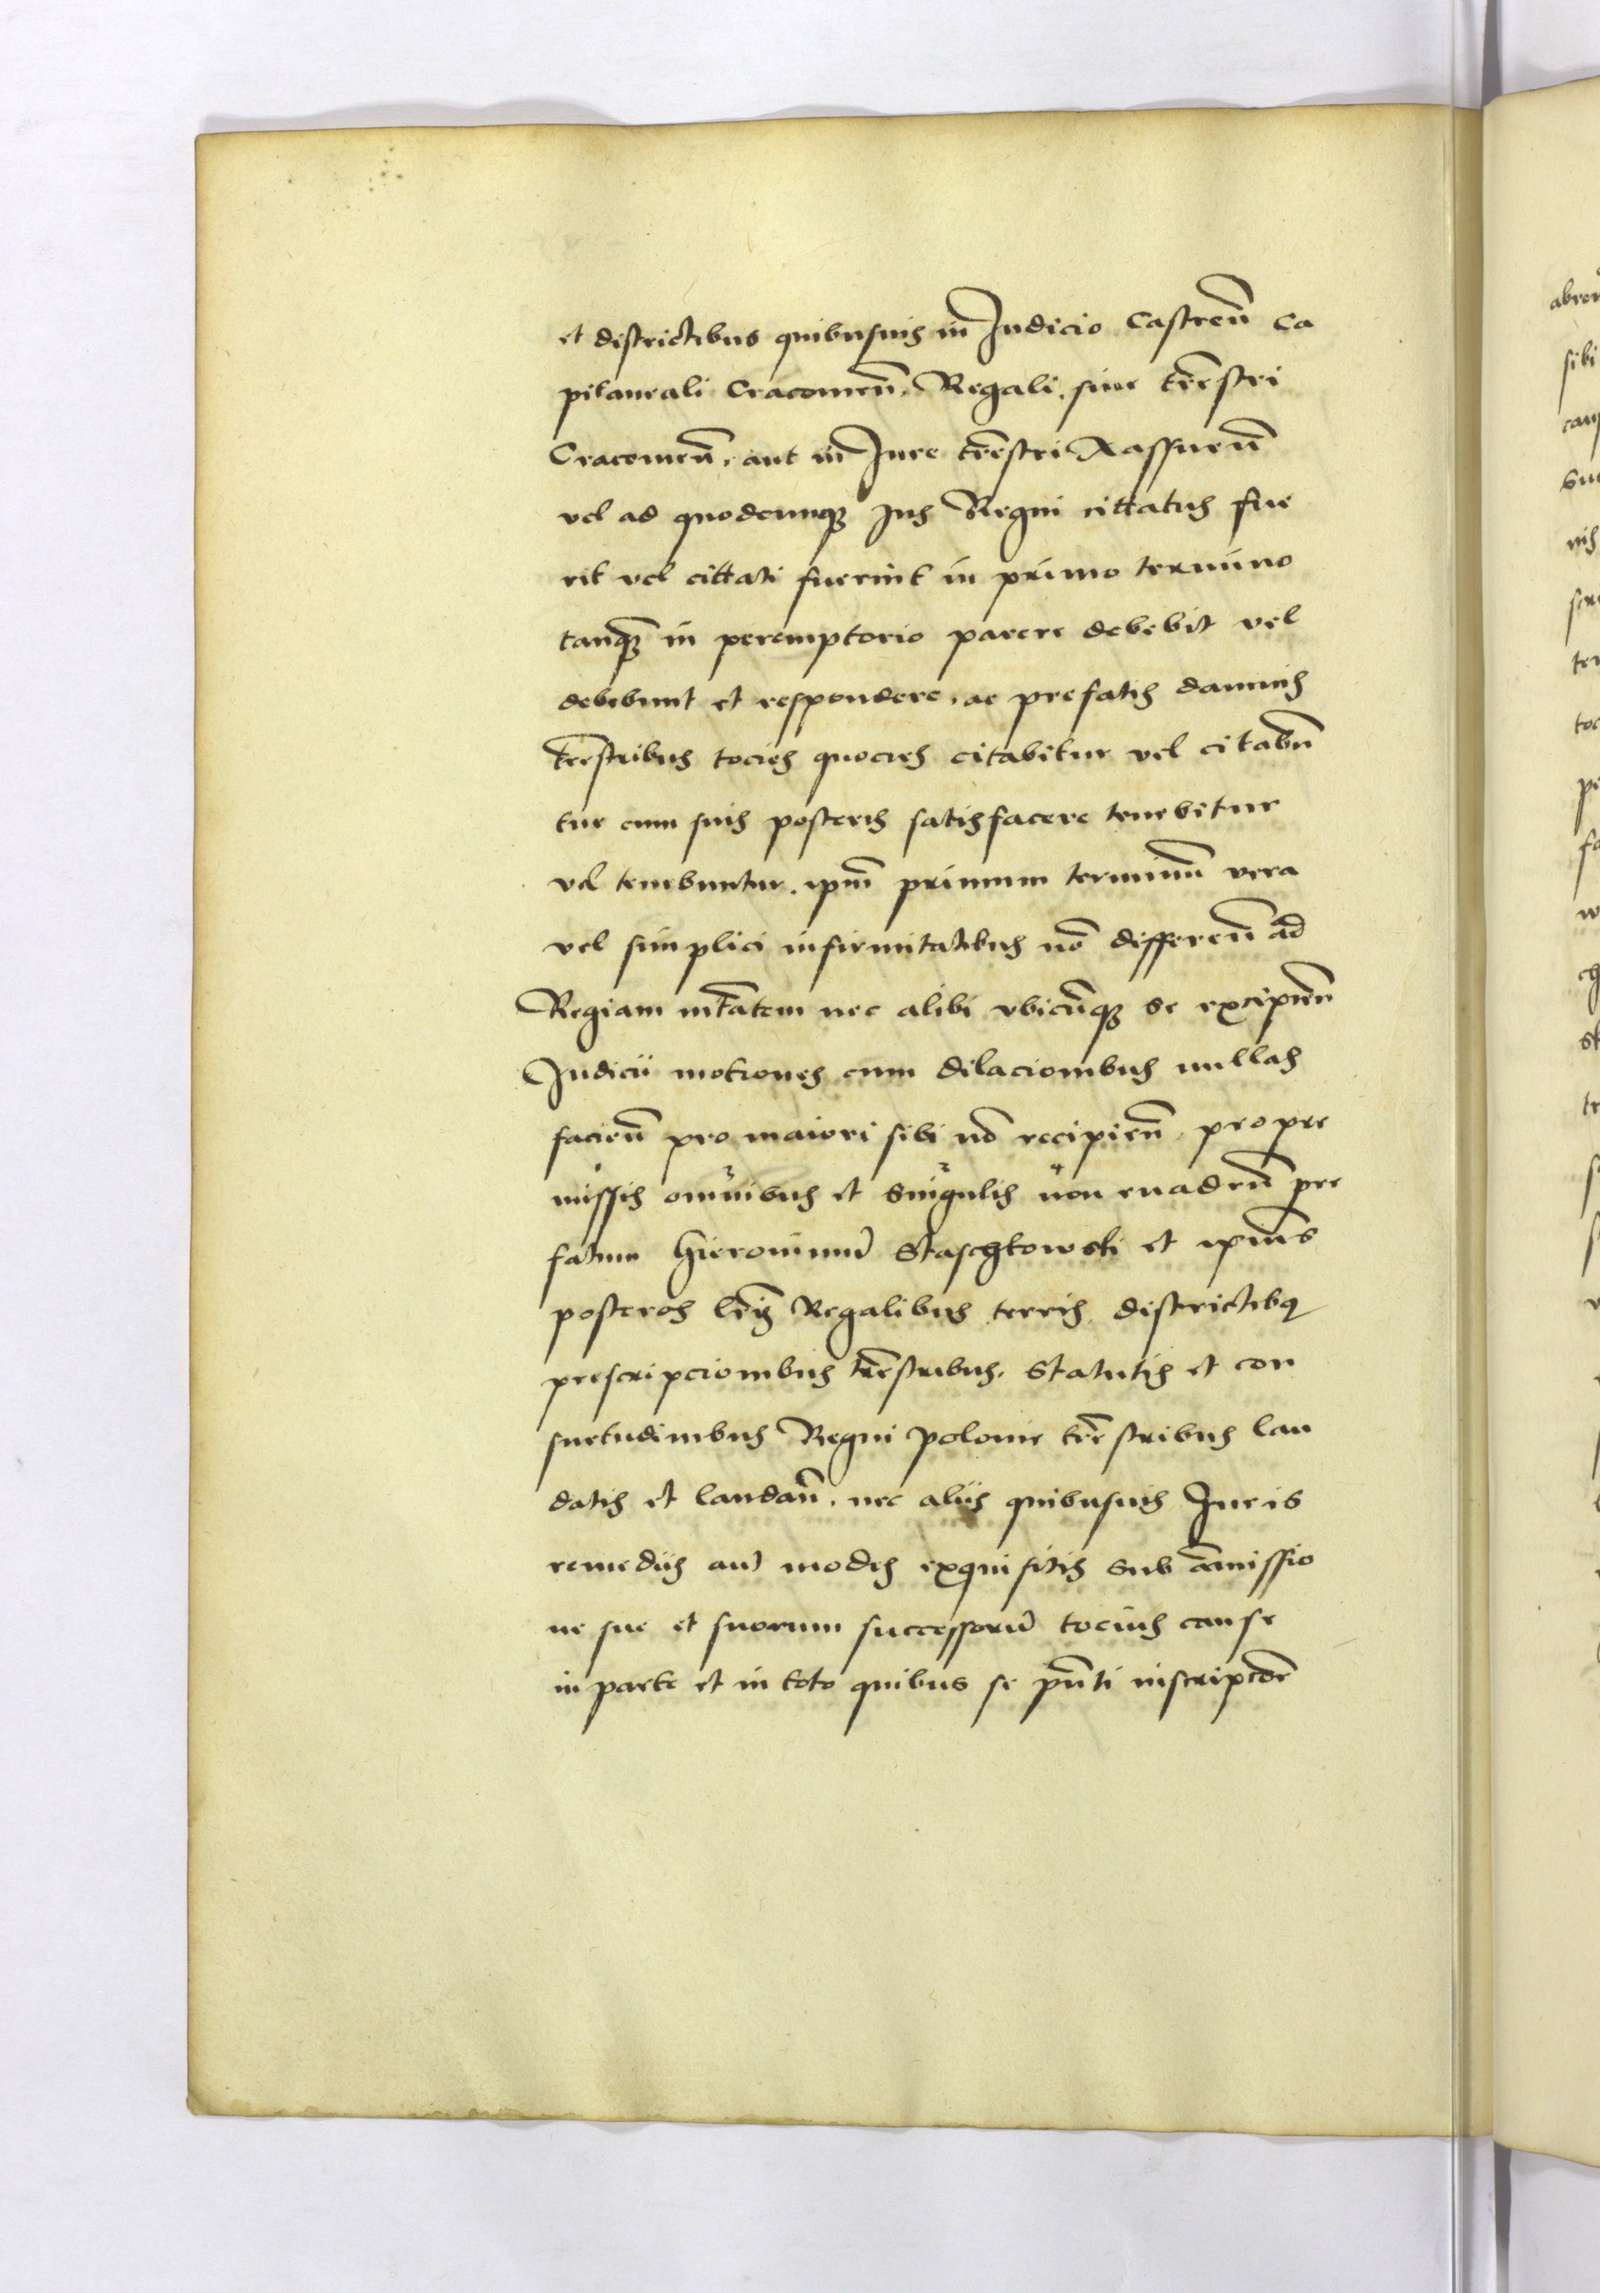 et districtibus quibusuis in Judicio Castren̄ Ca
pitaneali Cracouien̄. Regali. siue trēstri
Cracouien̄. aut in Jure trēstri Xassnen̄
vel ad quodcunqꝫ Jus Regni cittatus fue
rit vel cittati fuerint in primo termino
tanqꝫ in peremptorio parere debebit vel
debebunt et respondere. ac prefatis damnis
trēstribus tocies quocies citabitur vel citabūn
tur cum suis posteris satisfacere tenebitur
vel tenebuntur. ipm̄ primum terminū vera
vel simplici infirmitatibus nō differen̄ ad
Regiam mtātem nec alibi vbicūnqꝫ se excipien̄
Judicii motiones cum dilacionibus nullas
facien̄ pro maiori sibi nō recipien̄. pro pre
missis omnibus et singulis non euaden̄ pre
fatum Hieronimū Staschkowski et ipius̄
posteros lrīs Regalibus terris districtibꝫ
prescripcionibus trēstribus. Statutis et con
suetudinibus Regni polonie trēstribus lau
datis et laudan̄. nec aliis quibusuis Juris
remediis aut modis exquisitis Sub am̄issio
ne sue et suorum successorū tocius cause
in parte et in toto quibus se pn̄ti inscripcōe